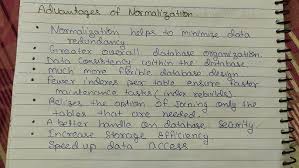 Advantages of Normalization
Normalization helps to minimize data
redundancy.
Greater overall database organization.
Data consistency within the database
much more flexible database design
fewer indexes per table ensure faster
maintenance tasks (index rebuilds)
Relizes the option of joining only the
tables that are needed.
A better handle on database security.
Increase Storage Efficiency
Speed up data Access